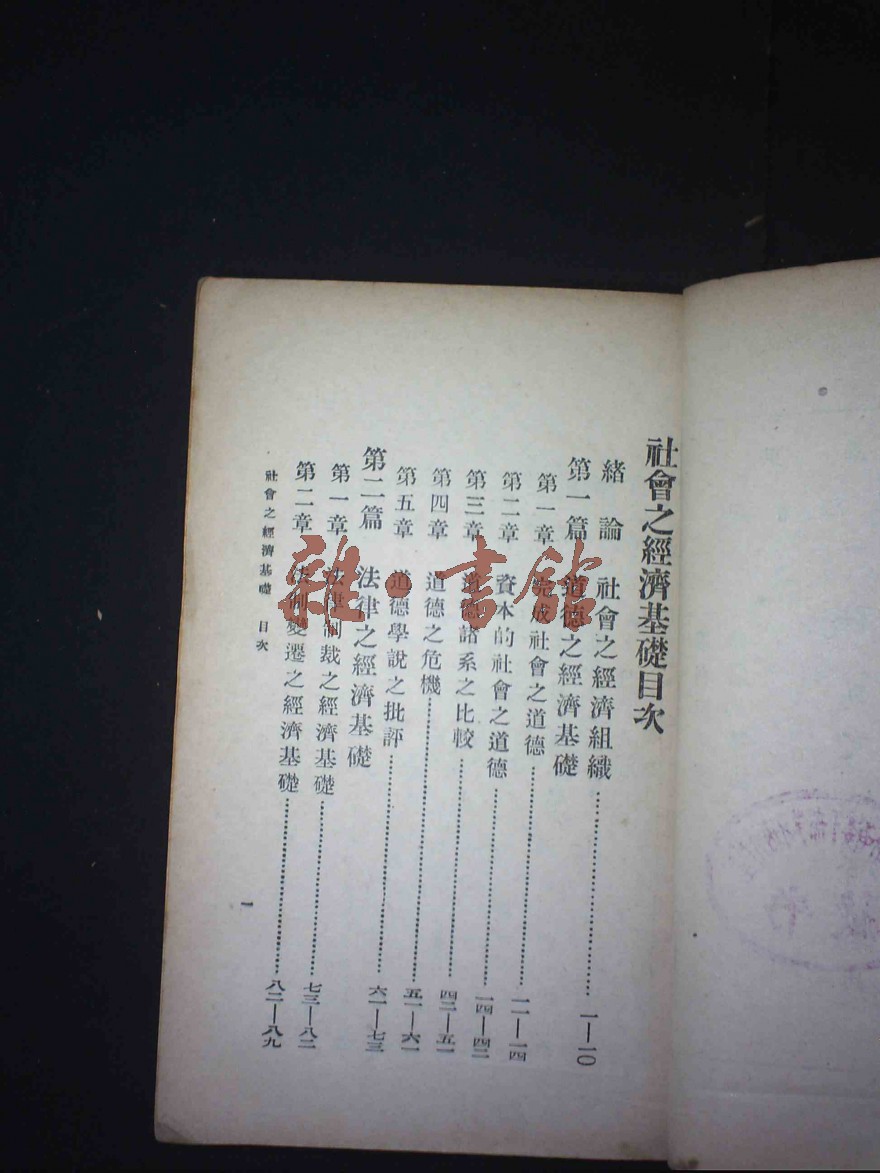 社會之經濟基礎目次
緒論 社會之經濟組織……一—一〇
第一篇 道德之經濟基礎
第一章 完成社會之道德……一一—一四
第二章 資本的社會之道德……一四—四二
第三章 道德諸系之比較……四二—五一
第四章 道德之危機……五一—六一
第五章 道德學說之批評……六一—七三
第二篇 法律之經濟基礎
第一章 法律制裁之經濟基礎……七三—八二
第二章 法制變遷之經濟基礎……八二—八九
社會之經濟基礎 目次
一
雜·書館